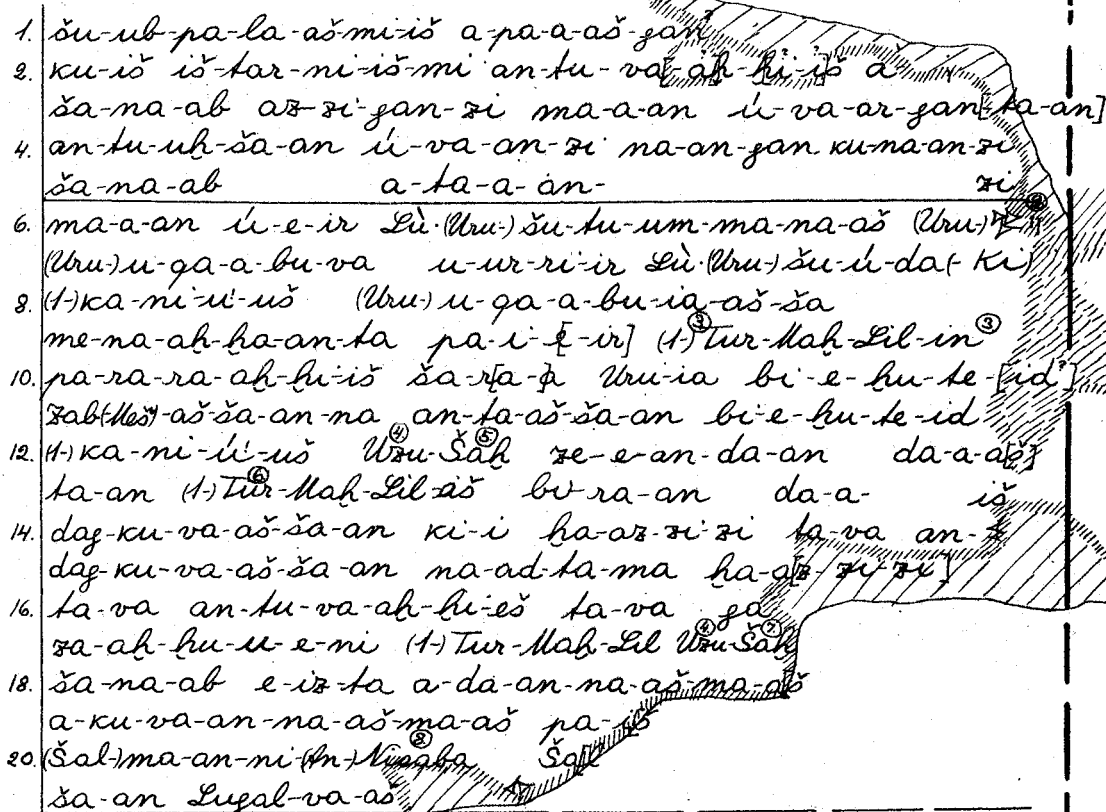 1. šu-ub-pa-la-aš-mi-iš a-pa-a-aš-gan
2. ku-iš iš-tar-ni-iš-mi an-tu-va[-aḫ-ḫi-iš a
ša-na-ab az-zi-gan-zi ma-a-an ú-va-ar-gan[-ta-an]
4. an-tu-uḫ-ša-an ú-va-an-zi na-an-gan ku-na-an-zi
ša-na-ab a-ta-a-an- zi
6. ma-a-an ú-e-ir Lù-(Uru-)šu-tu-um-ma-na-aš (Uru-)
(Uru-)u-ga-a-bu-va u-ur-ri-ir Lù-(Uru-)šu-ú-da(-Ki)
8. (1-)ka-ni-u-uš (Uru-)u-ga-a-bu-ia-aš-ša
me-na-aḫ-ḫa-an-ta pa-i-[-ir] (1-)Tur-Maḫ-Lil-in
10. pa-ra-ra-aḫ-ḫi-iš ša-r[a-a Uru-ia bi-e-ḫu-te-[id?]
zab(Meš)-aš-ša-an-na an-ta-aš-ša-an bi-e-ḫu-te-id
12. (1-)ka-ni-ú-uš Uzu-Šaḫ ze-e-an-da-an da-a-a[š]
ta-an (1-)Tur-Maḫ-Lil-aš bu-ra-an da-a- iš
14. dag-ku-va-aš-ša-an ki-i ḫa-az-zi-zi ta-va an-
dag-ku-va-aš-ša-an na-ad-ta-ma ḫa-a[z-zi-zi]
16. ta-va an-tu-va-aḫ-ḫi-eš ta-va ga
za-aḫ-ḫu-u-e-ni (1-)Tur-Maḫ-Lil Uzu-Šaḫ
18. ša-na-ab e-iz-ta a-da-an-na-aš-ma-aš
a-ku-va-an-na-aš-ma-aš pa-iš
20. (Šal-)ma-an-ni (An-)Nisaba Šal
ša-an Lugal-va-aš